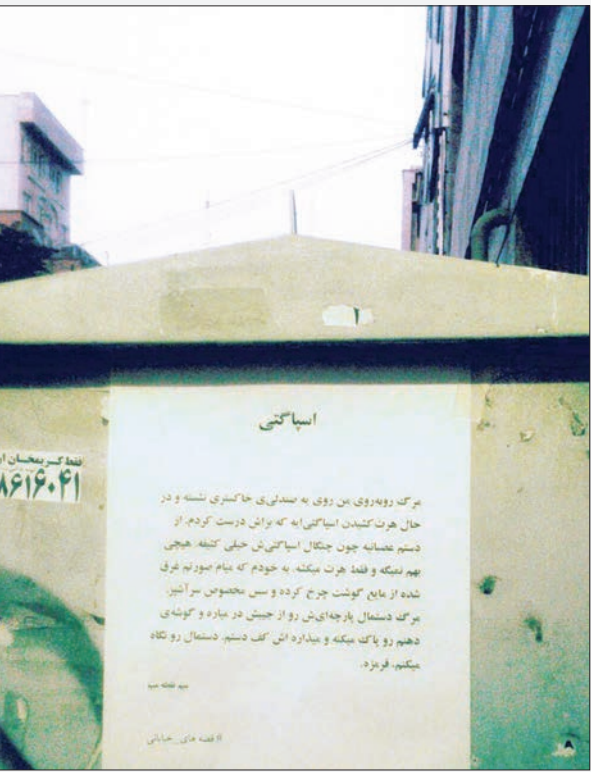 اسپاگتی
مرگ روبه‌روی من روی یه صندلی‌ی خاکستری نشسته و در
حال هرت کشیدن اسپاگتی‌ایه که براش درست کردم. از
دستم عصبانیه چون چنگال اسپاگتی‌ش خیلی کثیفه. هیچی
بهم نمیگه و فقط هرت میکشه. به خودم که میام صورتم غرق
شده از مایع گوشت چرخ کرده و سس مخصوص سرآشپز.
مرگ دستمال پارچه‌ای‌ش رو از جیبش در میاره و گوشه‌ی
دهنم رو پاک میکنه و میذاره اش کف دستم. دستمال رو نگاه
میکنم. قرمزه.
میم نقطه میم
# قصه های_خیابانی
فقط کریمخان
۸۶۱۶۰۴۱
A